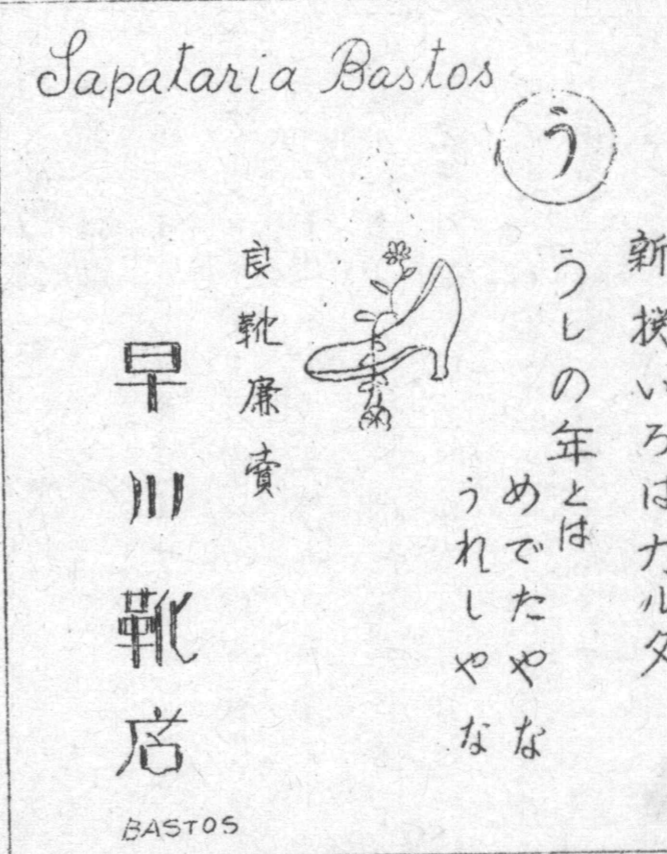 Sapataria Bastos
新撰いろはカルタ
う
うしの年とは
めでたやな
うれしやな
良靴廉賣
早川靴店
BASTOS